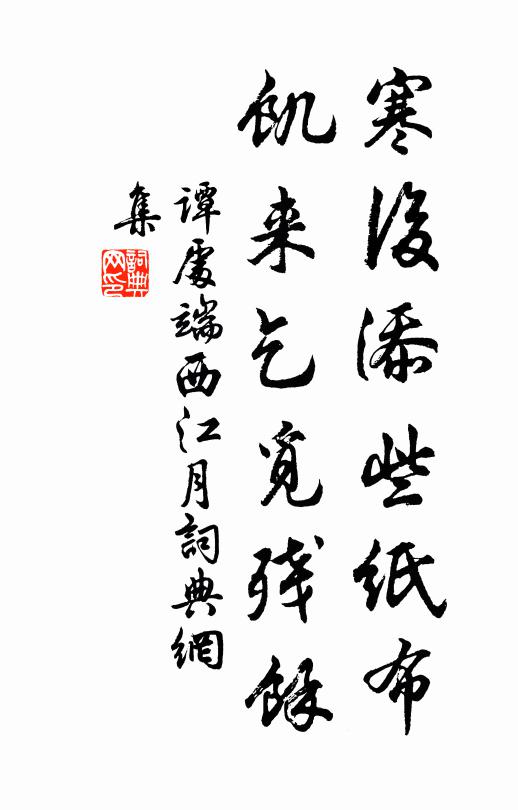 寒後添些紙布
飢来乞覓殘餘
譚處端西江月詞典網
集
詞典网印